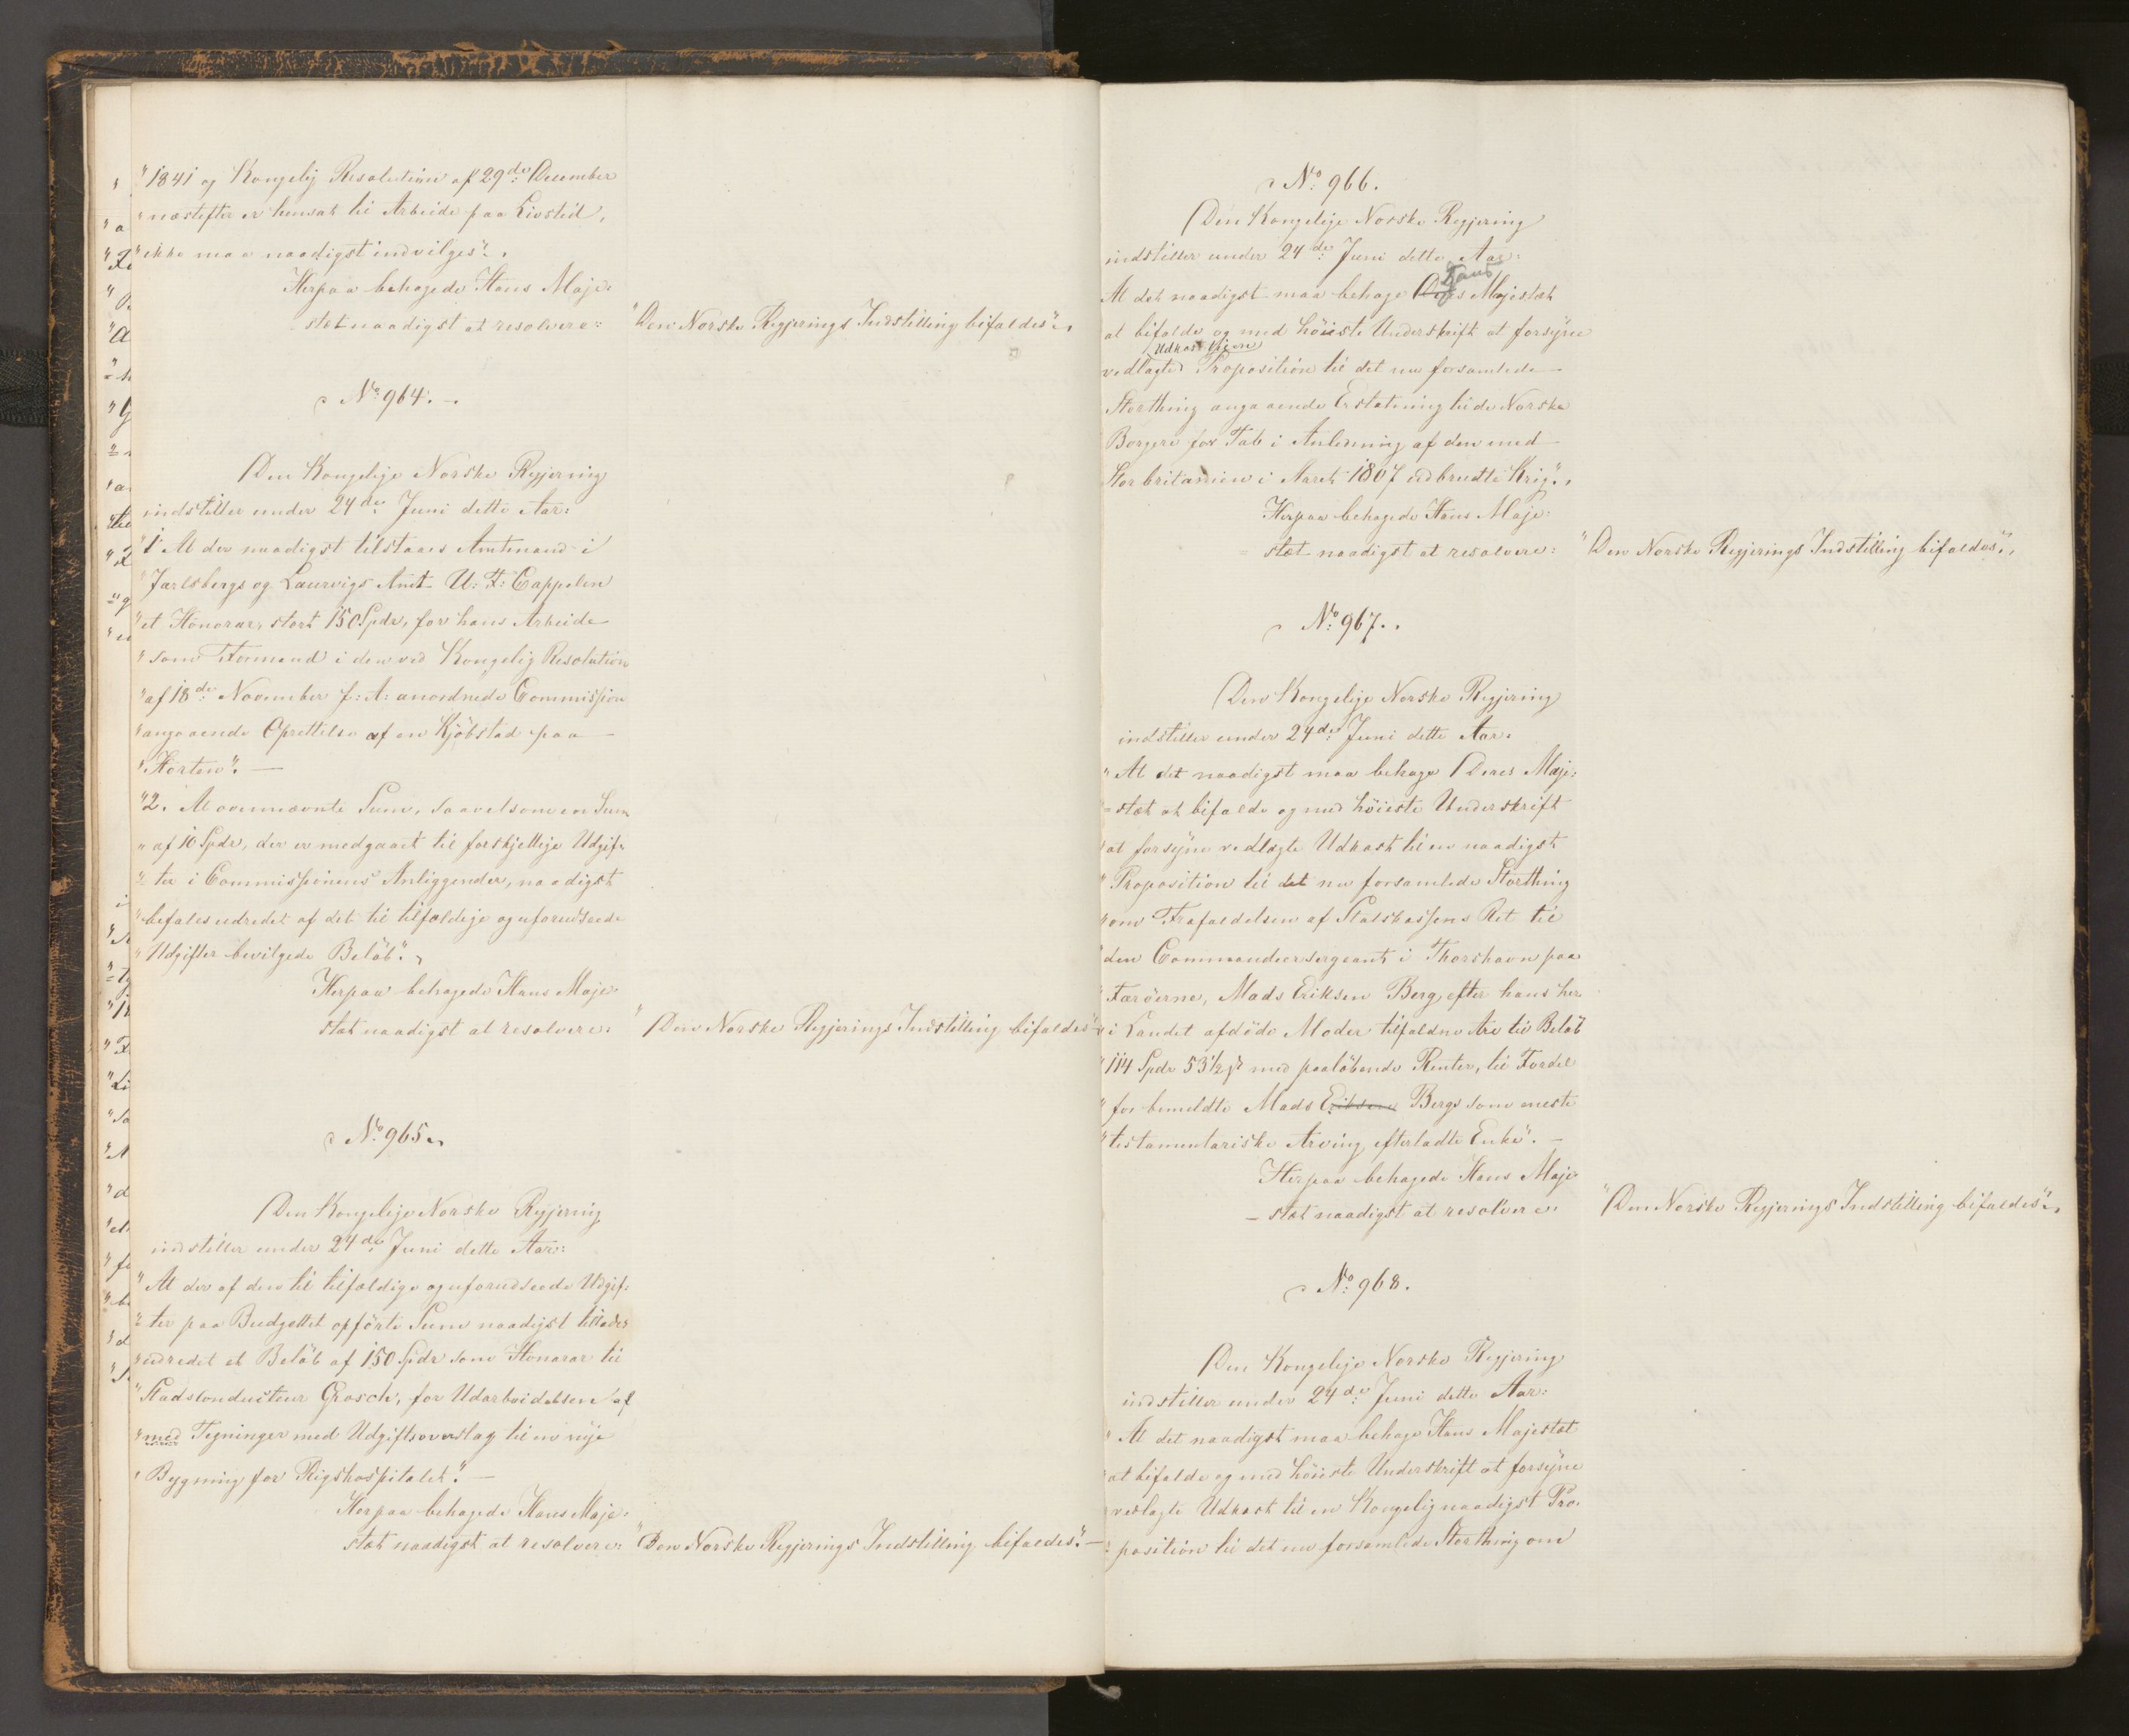 "1841 og Kongelig Resolution af 29de December
"næstefter er hensat til Arbeide paa Livstid,
"ikke maa naadigst indvilges".
Herpaa behagede Hans Maje-
stæt naadigst at resolvere: "Den Norske Regjerings Indstilling bifaldes".
No. 964.
Den Kongelige Norske Regjering
indstiller under 24de Juni dette Aar:
"1 At der naadigst tilstaaes Amtmand i
"Jarlsbergs og Laurvigs Amt U: F: Cappelen
"et Honorar, stort 150 Spdr, for hans Arbeide
"som Formand i den ved Kongelig Resolution
"af 18de November f: A: anordnede Commission
"angaaende Oprettelse af en Kjöbstad paa
"Horten". —
"2. At ovennævnte Sum, saavelsom en Sum
"af 10 Spdr, der er medgaaet til forskjellige Udgif-
"ter i Commissionens Anliggender, naadigst
"befales udredet af det til tilfældige og uforudseede
"Udgifter bevilgede Belöb".
Herpaa behagede Hans Maje-
stæt naadigst at resolvere: "Den Norske Regjerings Indstilling bifaldes"
No. 965.
Den Kongelige Norske Regjering
indstiller under 24de Juni dette Aar:
"At der af den til tilfældige og uforudseede Udgif-
"ter paa Budgettet opförte Sum naadigst tillades
"udredet et Belöb af 150 Spdr som Honorar til
"Stadsconducteur Grosch, for Udarbeidelsen af
"med Tegninger med Udgiftsoverslag til en nye
"Bygning for Rigshospitalet". —
Herpaa behagede Hans Maje-
stæt naadigst at resolvere: "Den Norske Regjerings Indstilling bifaldes". —
No. 966.
Den Kongelige Norske Regjering
indstiller under 24de Juni dette Aar:
Hans
At det naadigst maa behage Deres Majestæt
at bifalde og med höieste Underskrift at forsyne
Udkast til en
vedlagte Proposition til det nu forsamlede
Storthing angaaende Erstatning til de Norske
Borgere for Tab i Anledning af den med
Storbritanien i Aaret 1807 udbrudte Krig".
Herpaa behagede Hans Maje-
stæt naadigst at resolvere: "Den Norske Regjerings Indstilling bifaldes".
No. 967.
Den Kongelige Norske Regjering
indstiller under 24de Juni dette Aar:
"At det naadigst maa behage Deres Maje-
"stæt at bifalde og med höieste Underskrift
"at forsyne vedlagte Udkast til en naadigst
"Proposition til det nu forsamlede Storthing
"om Frafaldelsen af Statskassens Ret til
"den Commandeersergeant i Thorshavn paa
"Færöerne, Mads Eriksen Berg, efter hans her
"i Landet afdöde Moder tilfaldne Arv til Belöb
"114 Spdr 53½ ß med paalöbende Renter, til Fordel
"for bemeldte Mads Eriksens Bergs som eneste
"testamentariske Arving efterladte Enke". —
Herpaa behagede Hans Maje-
stæt naadigst at resolvere: "Den Norske Regjerings Indstilling bifaldes".
No. 968.
Den Kongelige Norske Regjering
indstiller under 24de Juni dette Aar:
"At det naadigst maa behage Hans Majestæt
"at bifalde og med höieste Underskrift at forsyne
vedlagte Udkast til en Kongelig naadigst Pro-
position til det nu forsamlede Storthing om